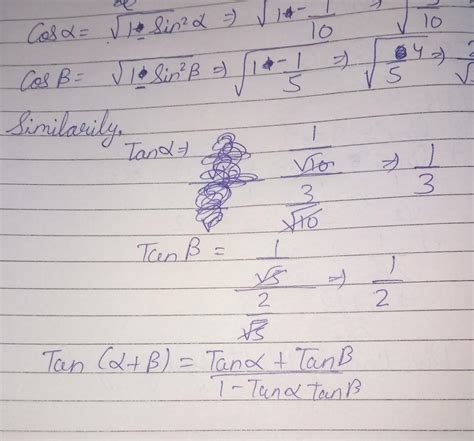 Cosα = √1-Sin²α ⇒ √1-1/10 ⇒ √ /10
CosB = √1-Sin²B ⇒ √1-1/5 ⇒ √4/5 ⇒
Similarily,
Tanα ⇒ 1/√10 / 3/√10 ⇒ 1/3
TanB = 1/√5 / 2/√5 ⇒ 1/2
Tan (α+B) = Tanα + TanB / 1-Tanα TanB